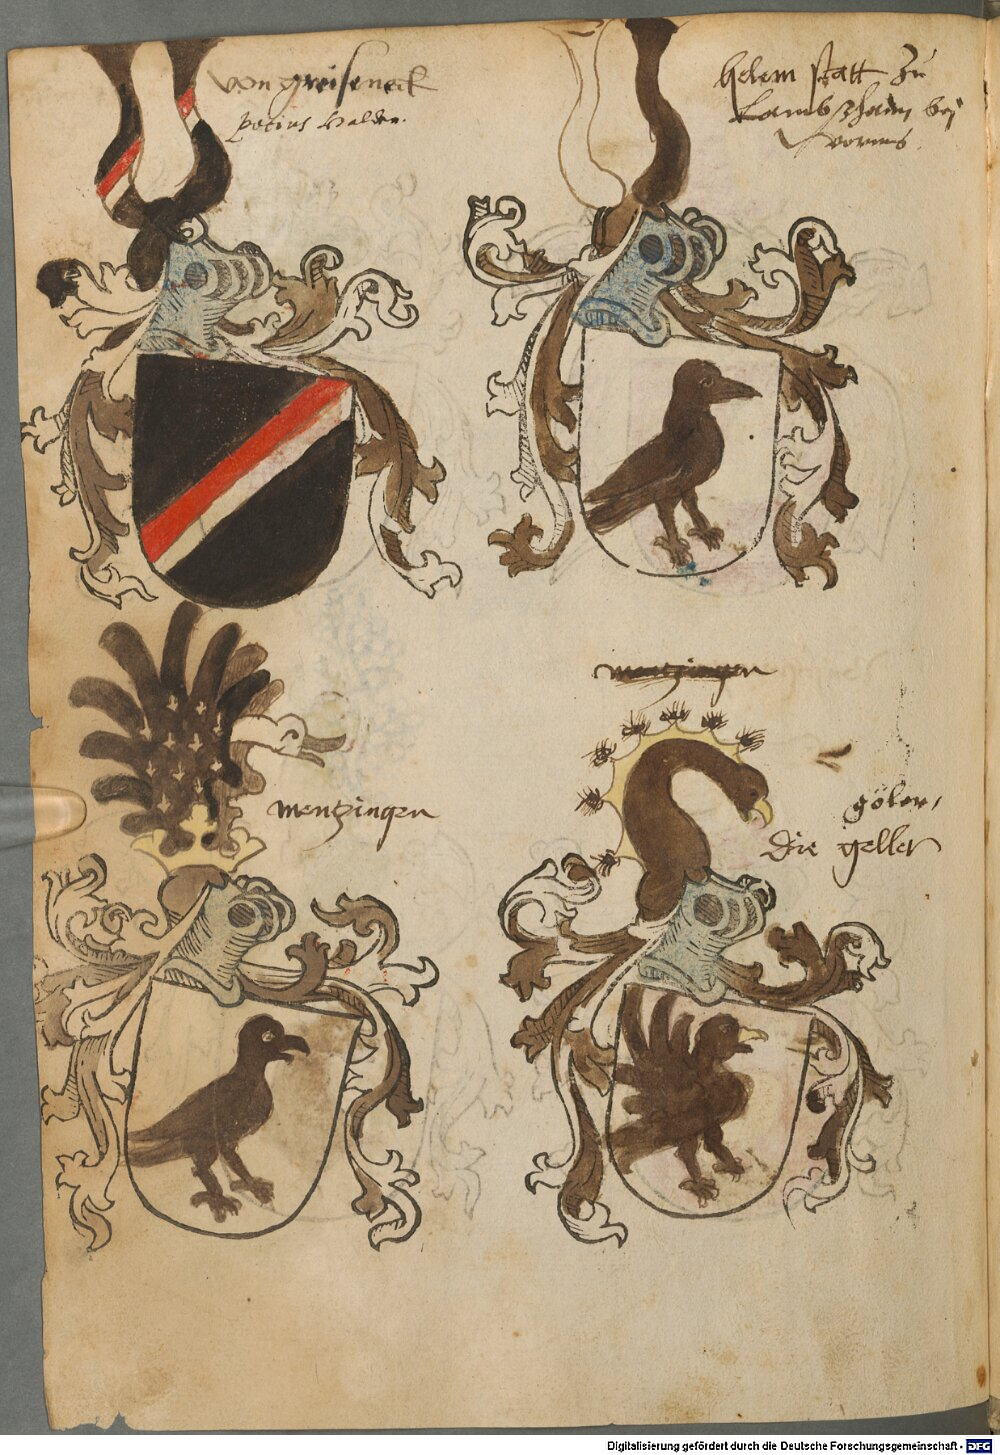 von greiseneck
potius Halden.
helem statt zu
Lambszhaim bei
wormns.
mentzingen
mentzingen
göler,
die geller
Digitalisierung gefördert durch die Deutsche Forschungsgemeinschaft - DFG